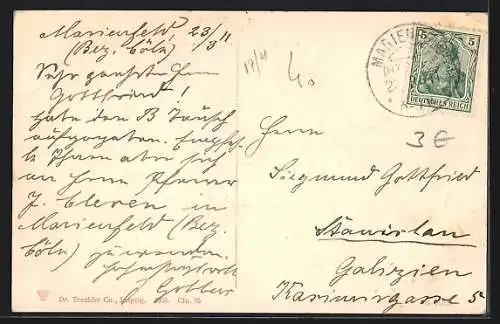 Marienfeld, 23/11
(Bez. Cöln) 3
Sehr geehrter Herr
Gottfried!
habe den B Tausch
aufgegeben. Empfeh-
le Ihnen aber sich
an Herrn Pfarrer
J. Eleven in
Marienfeld (Bez.
Cöln) zu wenden.
Hochachtungsvoll
17/4
40
3€
MARIEN
5 5
DEUTSCHES REICH
Herrn
Siegmund Gottfried
Stanislau
Galizien
Kasimirgasse 5
Dr. Trenkler Co., Leipzig.